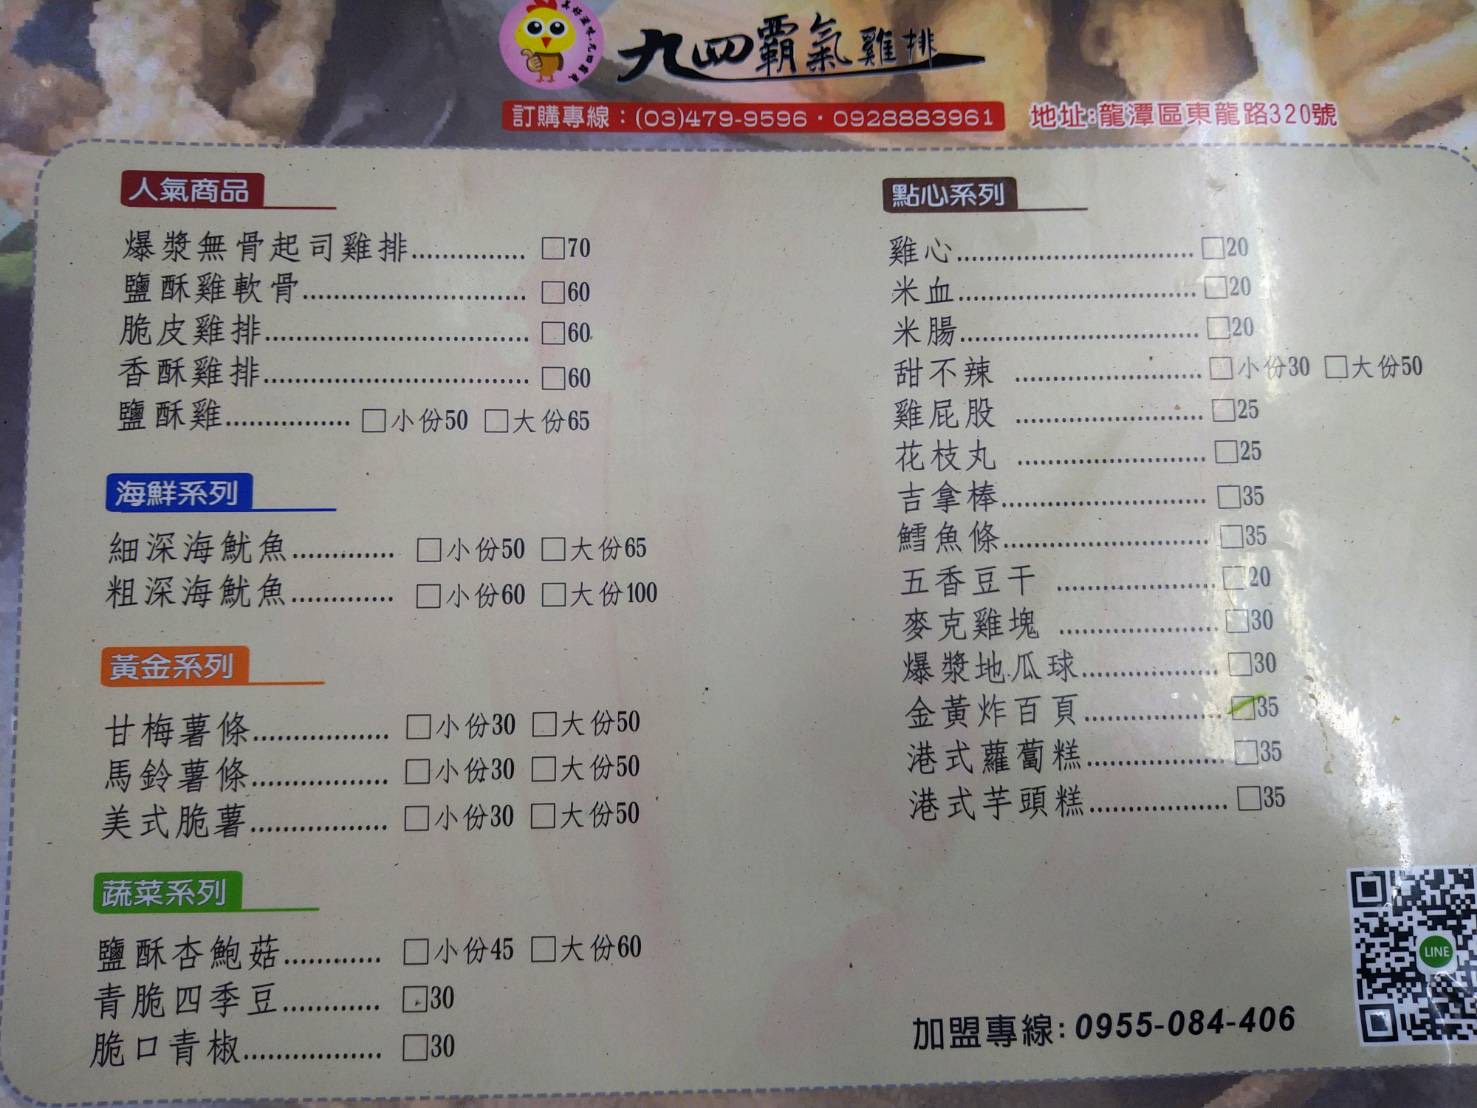 九四霸氣雞排
訂購專線：(03)479-9596·0928883961
地址:龍潭區東龍路320號
人氣商品
爆漿無骨起司雞排............... □70
鹽酥雞軟骨............................ □60
脆皮雞排................................. □60
香酥雞排................................. □60
鹽酥雞................ □小份50 □大份65
海鮮系列
細深海魷魚............. □小份50 □大份65
粗深海魷魚............. □小份60 □大份100
黃金系列
甘梅薯條................. □小份30 □大份50
馬鈴薯條................. □小份30 □大份50
美式脆薯................. □小份30 □大份50
蔬菜系列
鹽酥杏鮑菇............ □小份45 □大份60
青脆四季豆............ □30
脆口青椒................. □30
點心系列
雞心.............................. □20
米血.............................. □20
米腸.............................. □20
甜不辣 ........................ □小份30 □大份50
雞屁股 ........................ □25
花枝丸 ........................ □25
吉拿棒.......................... □35
鱈魚條.......................... □35
五香豆干 .................... □20
麥克雞塊 .................... □30
爆漿地瓜球................. □30
金黃炸百頁................. □35
港式蘿蔔糕................. □35
港式芋頭糕................. □35
LINE
加盟專線:0955-084-406